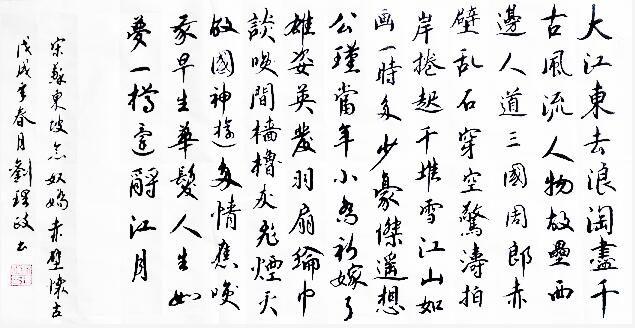 大江東去浪淘盡千
古風流人物故壘西
邊人道三國周郎赤
壁乱石穿空驚濤拍
岸捲起千堆雪江山如
画一時多少豪傑遥想
公瑾當年小喬初嫁了
雄姿英發羽扇綸巾
談咲間檣櫓灰飛煙灭
故國神遊多情應咲
我早生華髮人生如
夢一樽還酹江月
宋蘇東坡念奴嬌赤壁懷古
戊戌年春月劉理政書